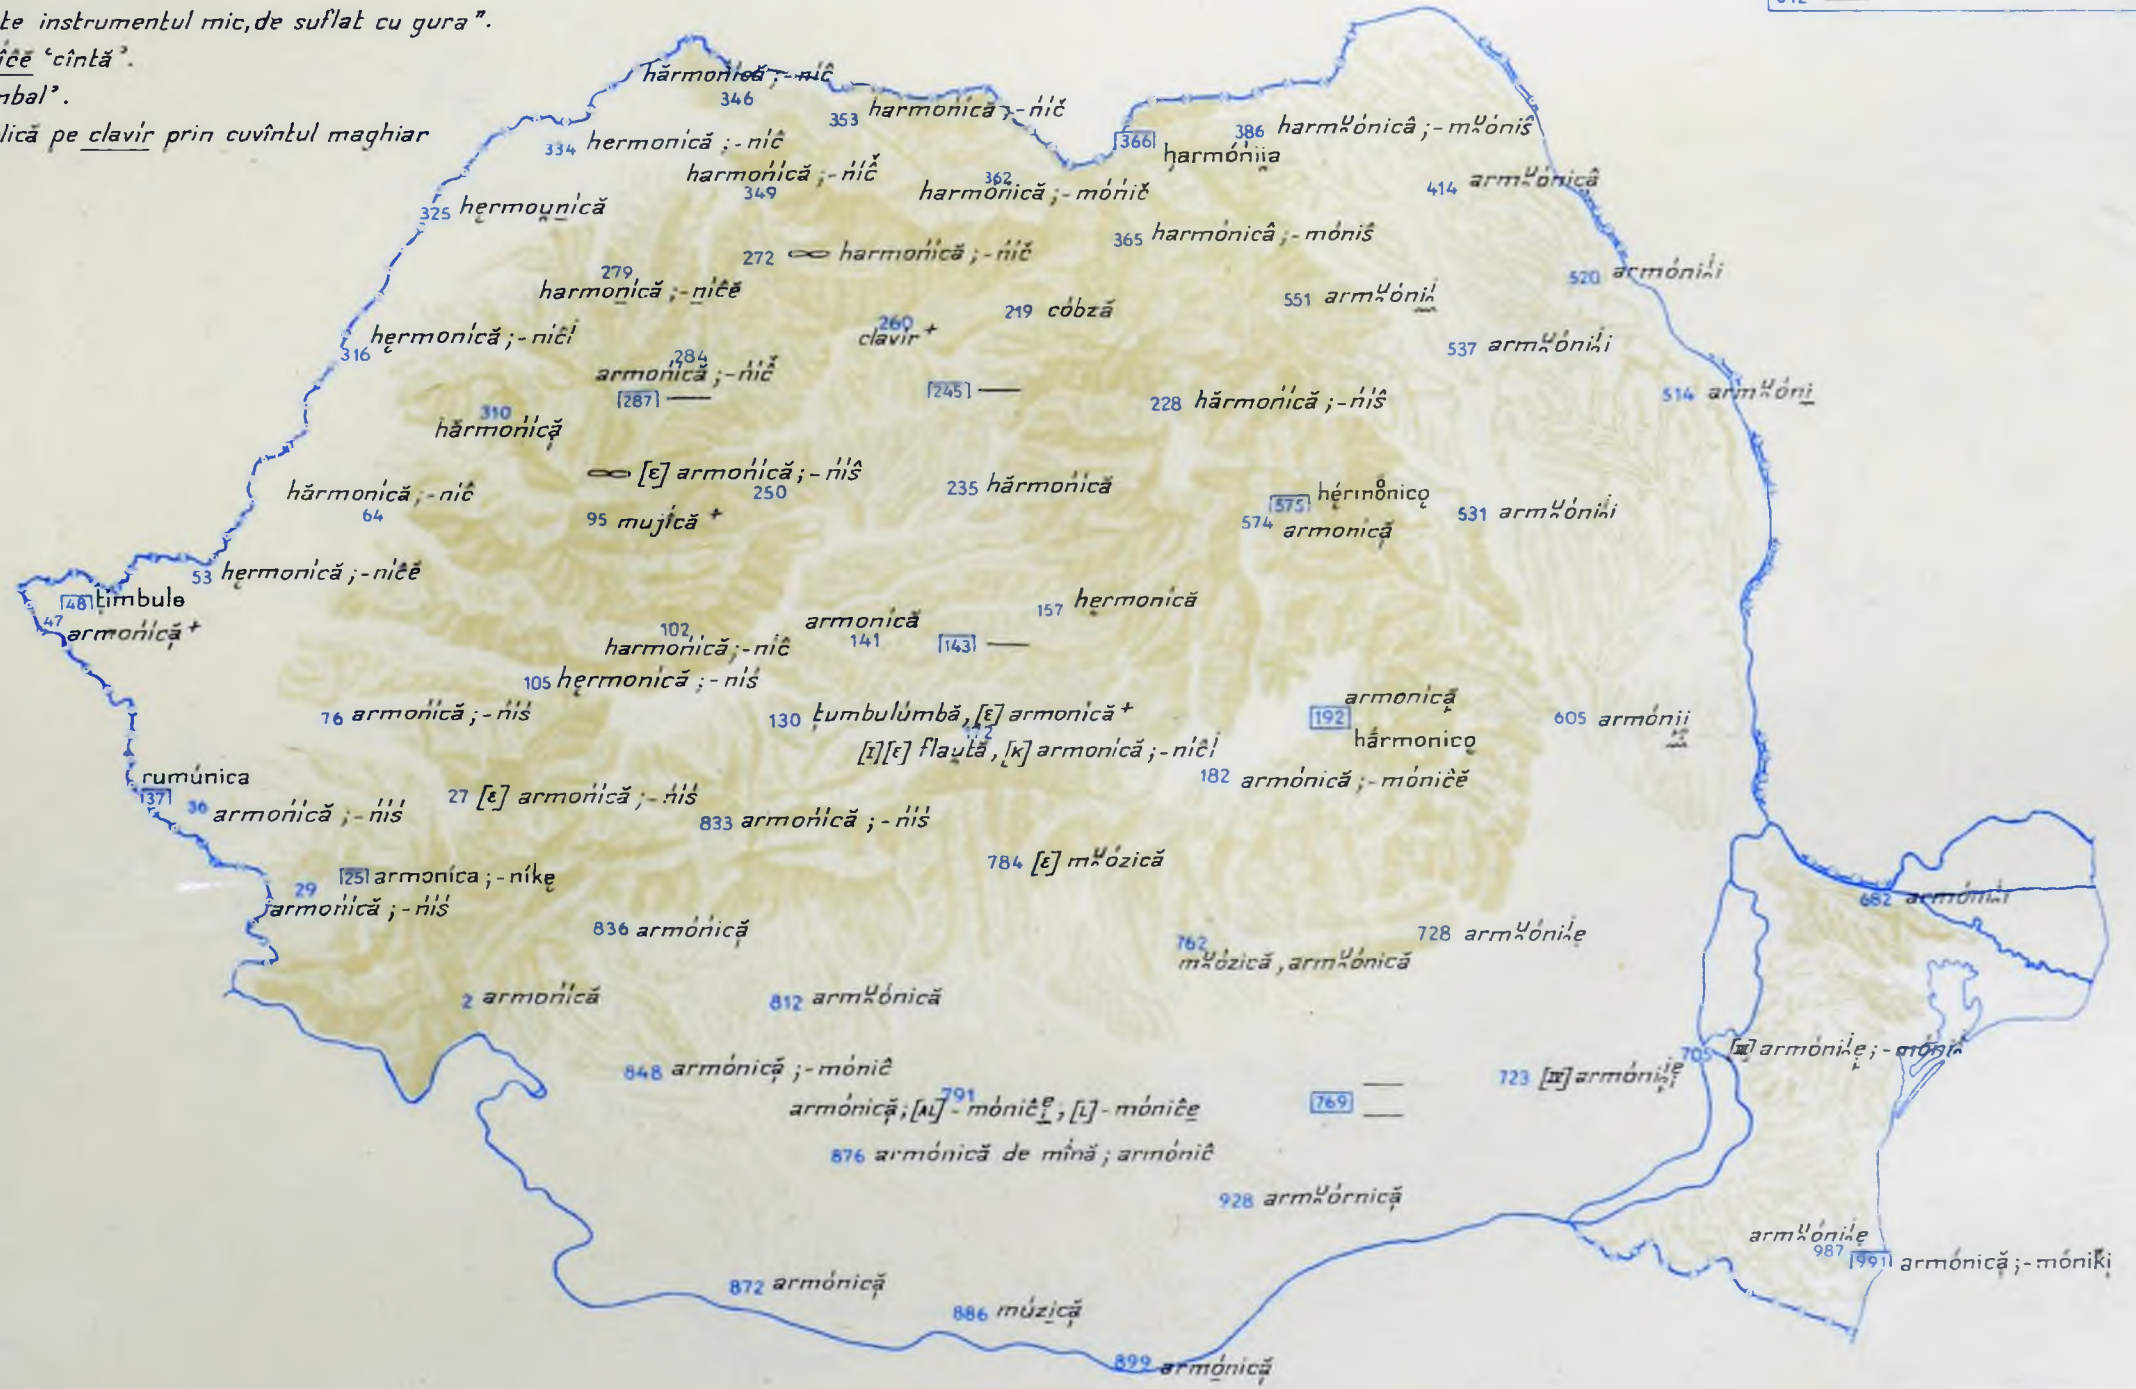 te instrumentul mic, de suflat cu gura".
‘cîntă’.
plică pe clavir prin cuvîntul maghiar
hărmonícă ; -níĉ
346
353 harmońícă ; -ńíč
334 hermonícă ; -níĉ
harmońícă ; -ńíĉ
349
362
harmónică ; -mónič
366
harmóniia
386 harmᵘónicâ ; -mᵘóniŝ
414 armᵘónicâ
325 hęrmounícă
365 harmónicâ ; -móniŝ
272 harmońícă ; -ńíč
279
harmonícă ; -níĉĕ
219 cóbză
551 armᵘónií
520 armónii̯i
260
clavír +
316 hęrmonícă ; -níĉi
537 armᵘónii̯i
284
armońícă ; -ńíĉ
287 —
245 —
228 hărmońícă ; -ńíŝ
514 armᵘóni
310
hărmońícă
[ε] armońícă ; -ńíŝ
250
235 hărmońícă
hărmonícă ; -níĉ
64
95 mujícă +
575 hérmŏnico
574 armonícă
531 armᵘónii̯i
53 hęrmonícă ; -níĉĕ
48 țimbule
47
armońícă +
157 hęrmonícă
102
harmońícă ; -níĉ
armonícă
141
143 —
105 hęrmonícă ; -níś
76 armońícă ; -ńíś
130 țumbulúmbă, [ε] armonícă +
172
[I][ε] flaụtă, [K] armonícă ; -níĉi
armonícă
192
hărmonico
605 armónii
182 armónică ; -móniĉĕ
rumúnica
37
36 armońícă ; -ńíś
27 [ε] armońícă ; -ńíś
833 armońícă ; -ńíś
784 [ε] mᵘózică
25 armoníca ; -níkę
29
armońícă ; -ńíś
682 armónii̯i
836 armóńică
728 armᵘónii̯ę
762
mᵘózică, armᵘónică
2 armońícă
812 armᵘónică
848 armónică ; -móniĉ
705 [III] armónii̯ę ; -mónií
723 [IV] armónii̯ę
791
armónică ; [AL] -móniĉe, [L] -móniĉe
769 — —
876 armónică de mînă ; armóniĉ
928 armᵘórnică
armᵘónii̯ę
987
991 armónică ; -móniḱi
872 armónică
886 múzică
899 armónică